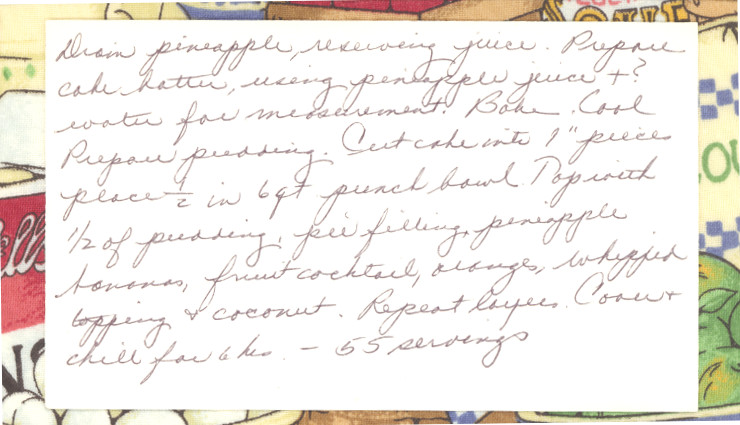 Drain pineapple, reserving juice. Prepare
cake batter, using pineapple juice + ?
water for measurement. Bake. Cool
Prepare pudding. Cut cake into 1" pieces
place 1/2 in 6 qt punch bowl. Top with
1/2 of pudding, pie filling, pineapple
bananas, fruit cocktail, oranges, whipped
topping & coconut. Repeat layers. Cover +
chill for 6 hrs. - 55 servings